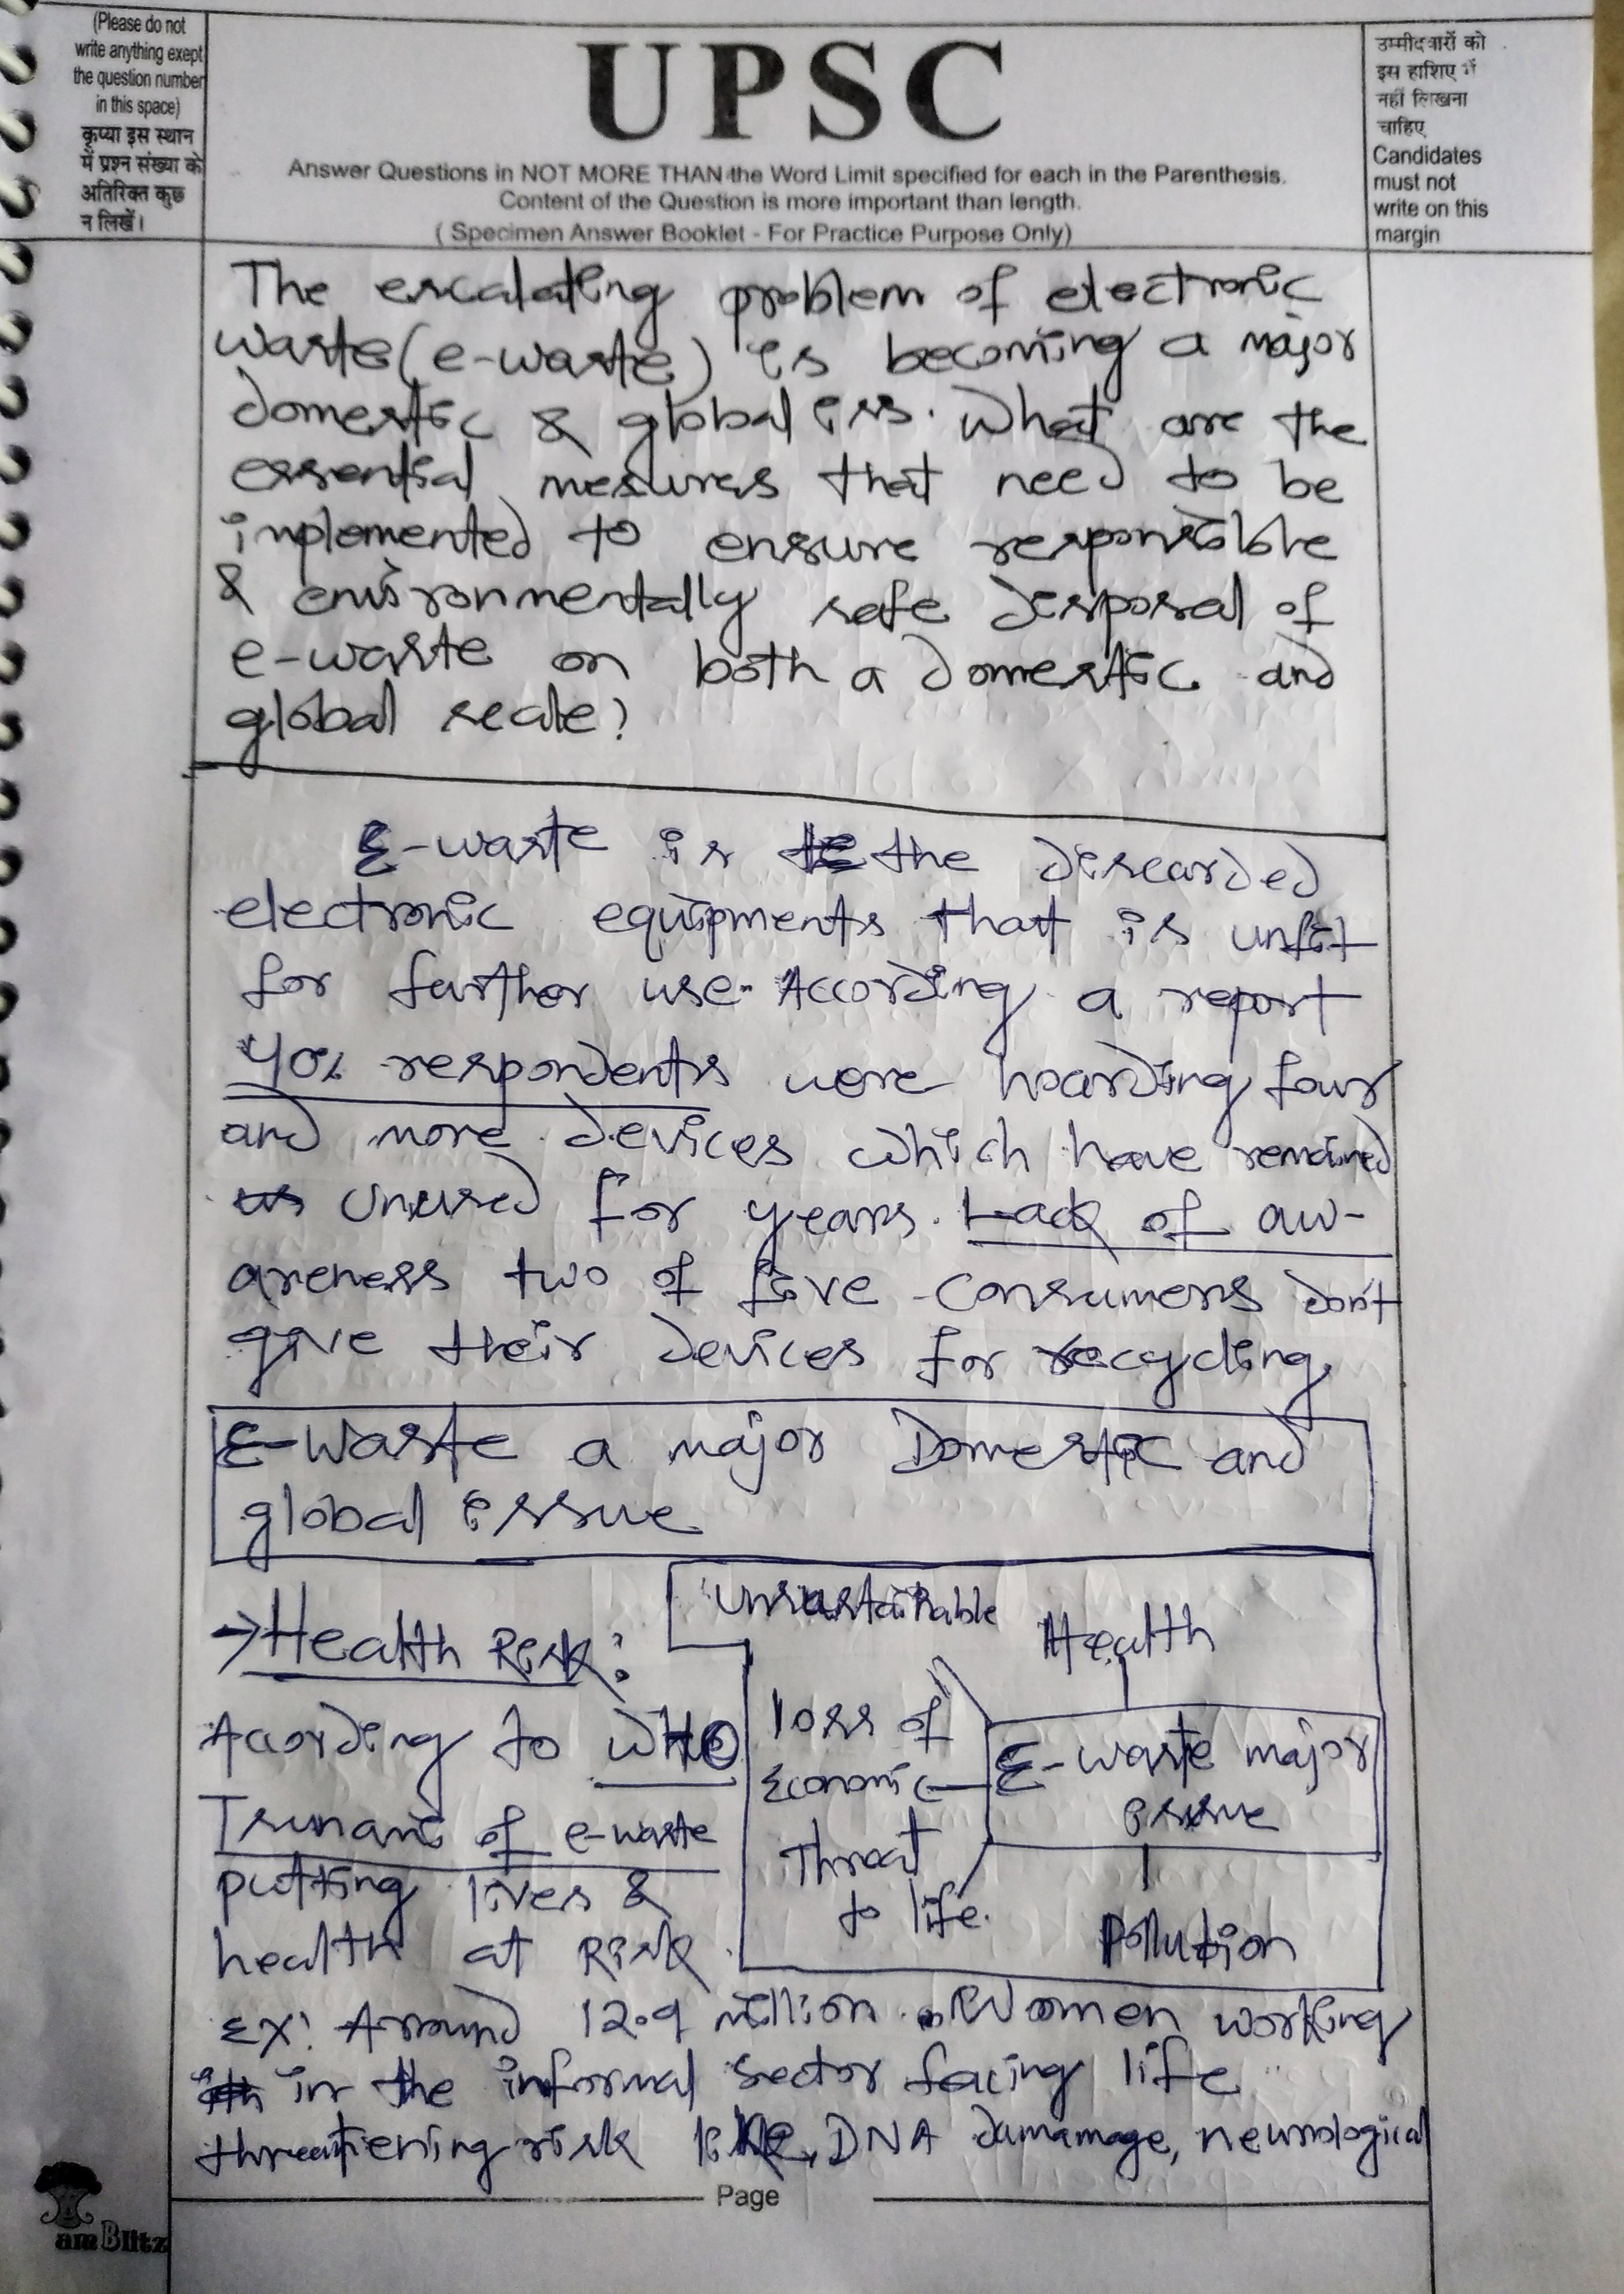 (Please do not
write anything exept
the question number
in this space)
कृप्या इस स्थान
में प्रश्न संख्या के
अतिरिक्त कुछ
न लिखें।
UPSC
Answer Questions in NOT MORE THAN the Word Limit specified for each in the Parenthesis.
Content of the Question is more important than length.
( Specimen Answer Booklet - For Practice Purpose Only)
उम्मीदवारों को
इस हाशिए में
नहीं लिखना
चाहिए
Candidates
must not
write on this
margin
The escalating problem of electronic
waste(e-waste) is becoming a major
domestic & global iss. What are the
essential mesures that need to be
implemented to ensure responsible
& environmentally safe disposal of
e-waste on both a domestic and
global scale?
E-waste is the discarded
electronic equipments that is unfit
for further use. According a report
40% respondents were hoarding four
and more devices which have remained
unused for years. Lack of aw-
areness two of five consumers don't
give their devices for recycling
E-waste a major Domestic and
global issue
→ Health Risk:
According to WHO
Tsunami of e-waste
putting lives &
health at Risk
Unsustainable
Health
loss of
Economic
E-waste major
issue
Threat
to life.
Pollution
Ex: Around 12.9 million Women working
in the informal sector facing life
threatiening risk like, DNA damamage, neurological
Page
am Blitz